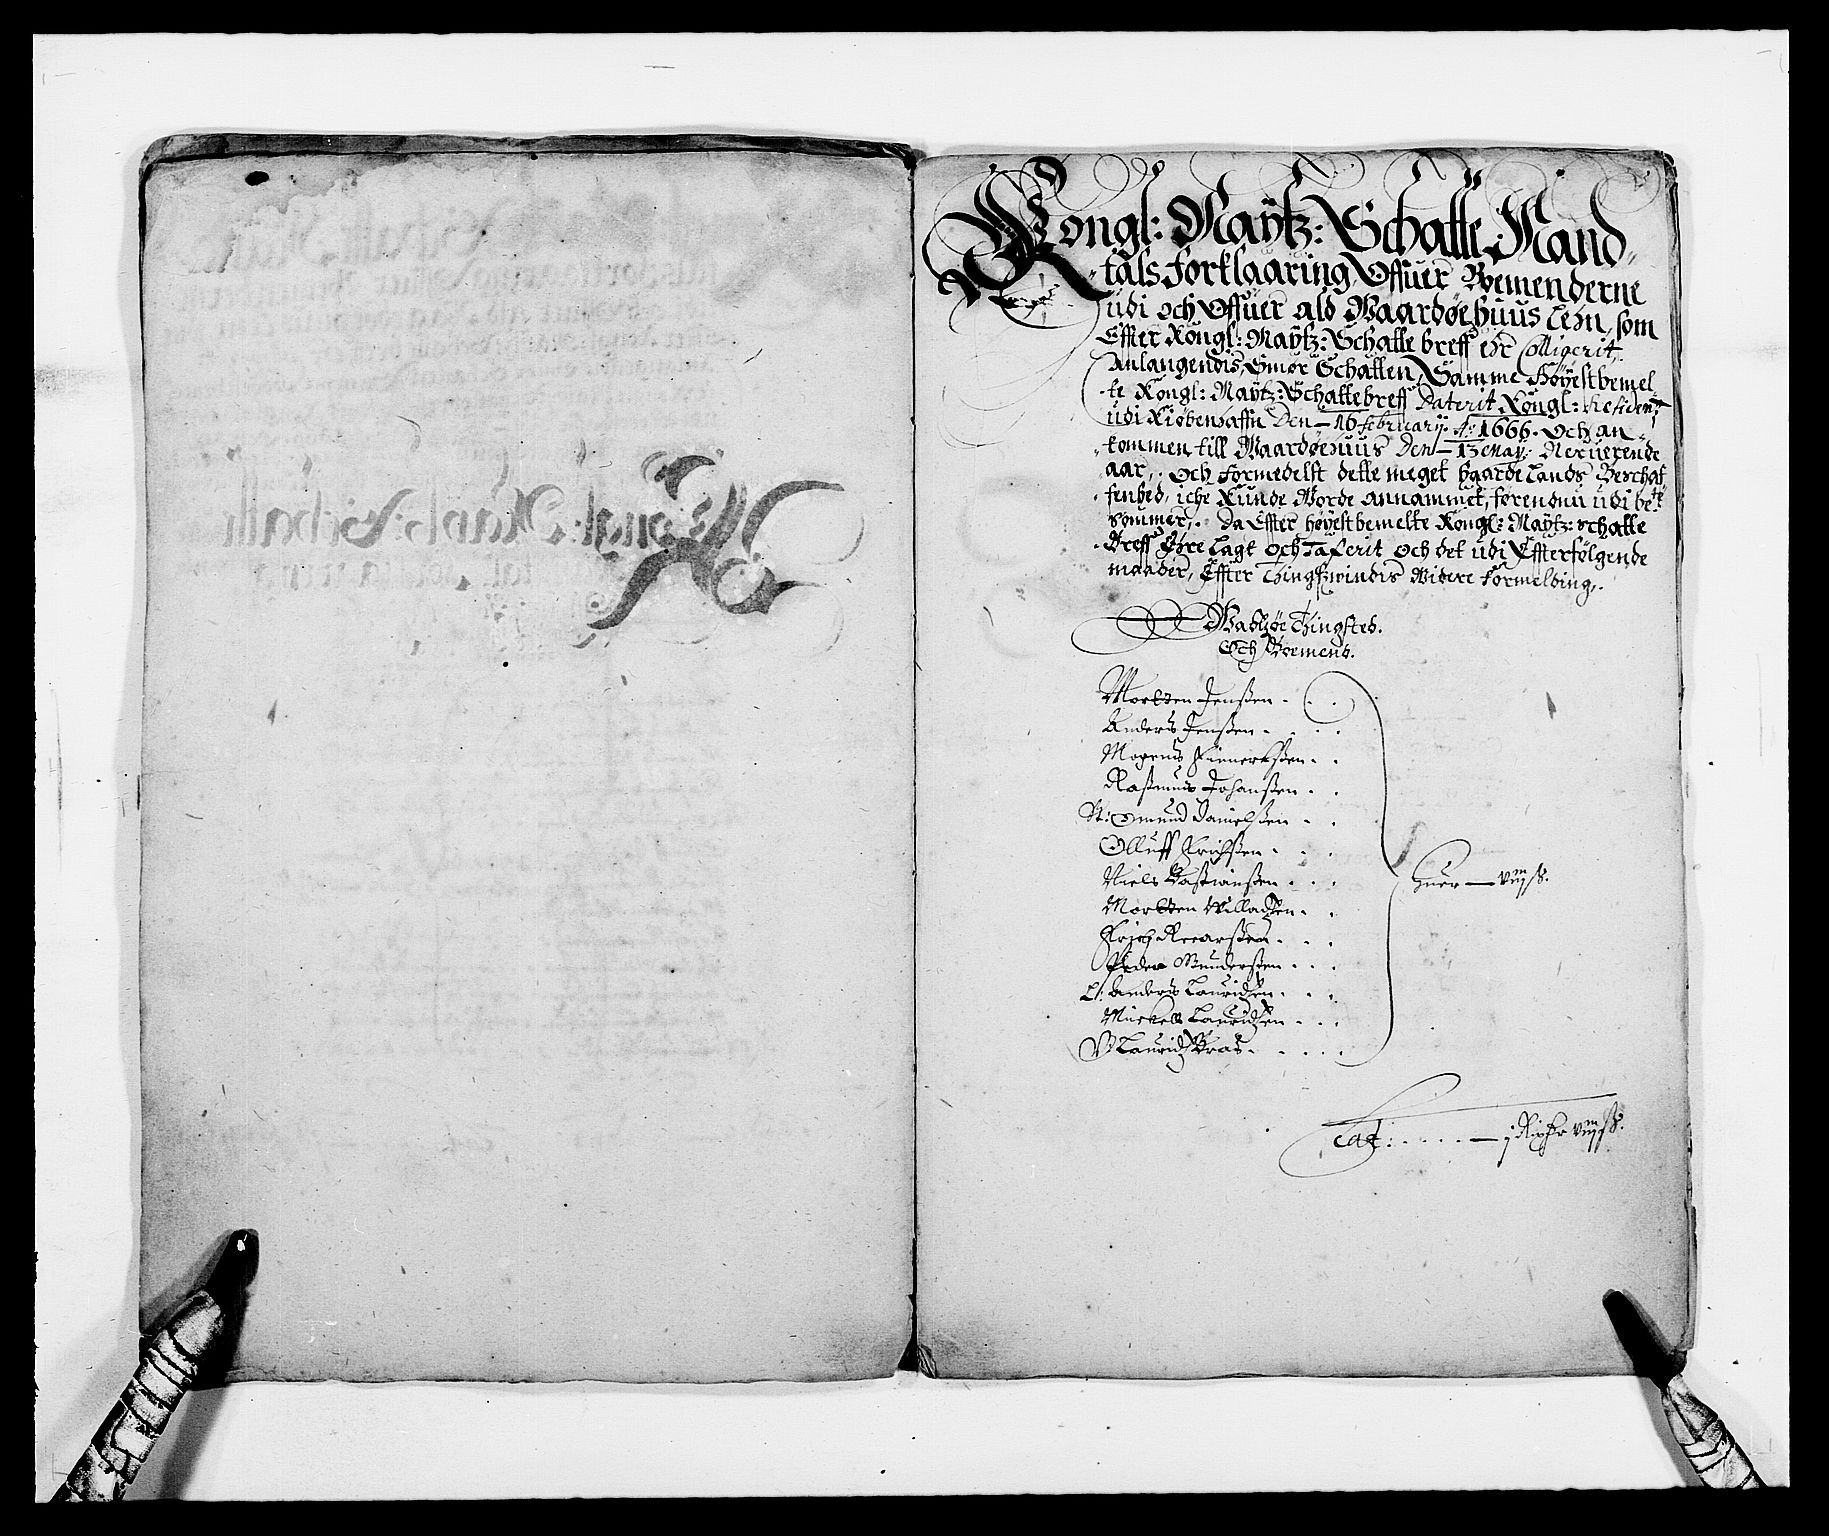 Kongl: Maÿtz: Schatte Mand-
tals forklaaring, Offuer Bemenderne
udi och Offuer ald Waardøehuus Lehn, som
Effter Kongl: Maÿtz: Schatte breff ehr Colligerit,
Anlangendis, Smør Schatten, Samme Høyestbemel-
te Kongl: Maÿtz: Schattebreff Daterit Kongl: Residentz
udi Kiøbenhaffn Den 16 Februarij. Ao: 1666. Och an-
kommen till Waardøehuus Den 13 Maÿ: Neruerende
aar, Och formedelst dette meget haarde Lands Beschaf-
fenhed, iche Kunde Worde annammet, førend nu udi bete
Sommer, Da Effter høyestbemelte Kongl: Maÿtz: Schatte
Breff Ehre lagt och Taxerit och det udi Effterfølgende
maader, Effter Thingswindis Widere formelding,
Wadsøe Thingsted.
Och Boemend.
Mortten Jenßen
Anders Jenßen
Mogens
Raßmus Johanßen
Omund Danielßen
Olluff Erichßen
Niels Bastianßen
Mortten Willadßen
Erich
Peder Gunderßen
Anders Lauridßen
Mickell Lauridßen
Lauridz
Huer — viij ß.
Lat: — j Rixdr viij ß.